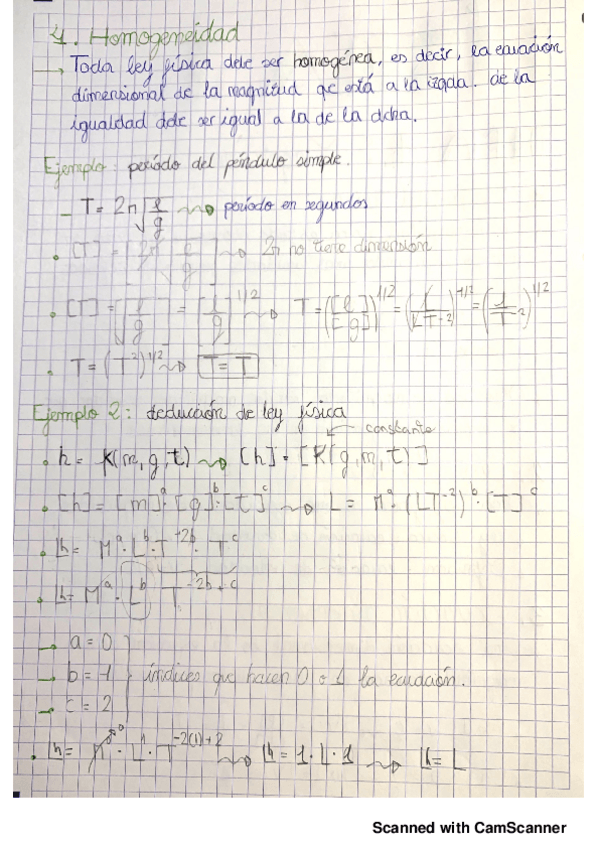 4. Homogeneidad
→ Toda ley física debe ser homogénea, es decir, la ecuación
dimensional de la magnitud qe está a la izqda. de la
igualdad debe ser igual a la de la dcha.
Ejemplo: período del péndulo simple.
- T = 2π√(l/g) ⇝ período en segundos
• [T] = [2π√(l/g)] ⇝ 2π no tiene dimensión
• [T] = [√(l/g)] = [l/g]^1/2 ⇝ T = ([l]/[g])^1/2 = (L/LT^-2)^1/2 = (1/T^-2)^1/2
• T = (T^2)^1/2 ⇝ T = T
Ejemplo 2: deducción de ley física
constante
• h = K(m, g, t) ⇝ [h] = [K(g, m, t)]
• [h] = [m]^a · [g]^b · [t]^c ⇝ L = M^a · (LT^-2)^b · [T]^c
• h = M^a · L^b · T^-2b · T^c
• h = M^a · L^b T^-2b+c
→ a = 0
→ b = 1 índices que hacen 0 o 1 la ecuación.
→ c = 2
• h = M^0 · L^1 · T^-2(1)+2 ⇝ h = 1 · L · 1 ⇝ h = L
Scanned with CamScanner